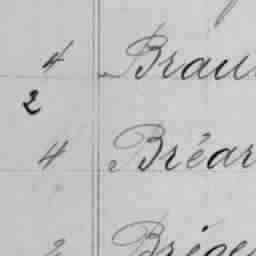 4 Brau
2
4 Bréar
2 Brége